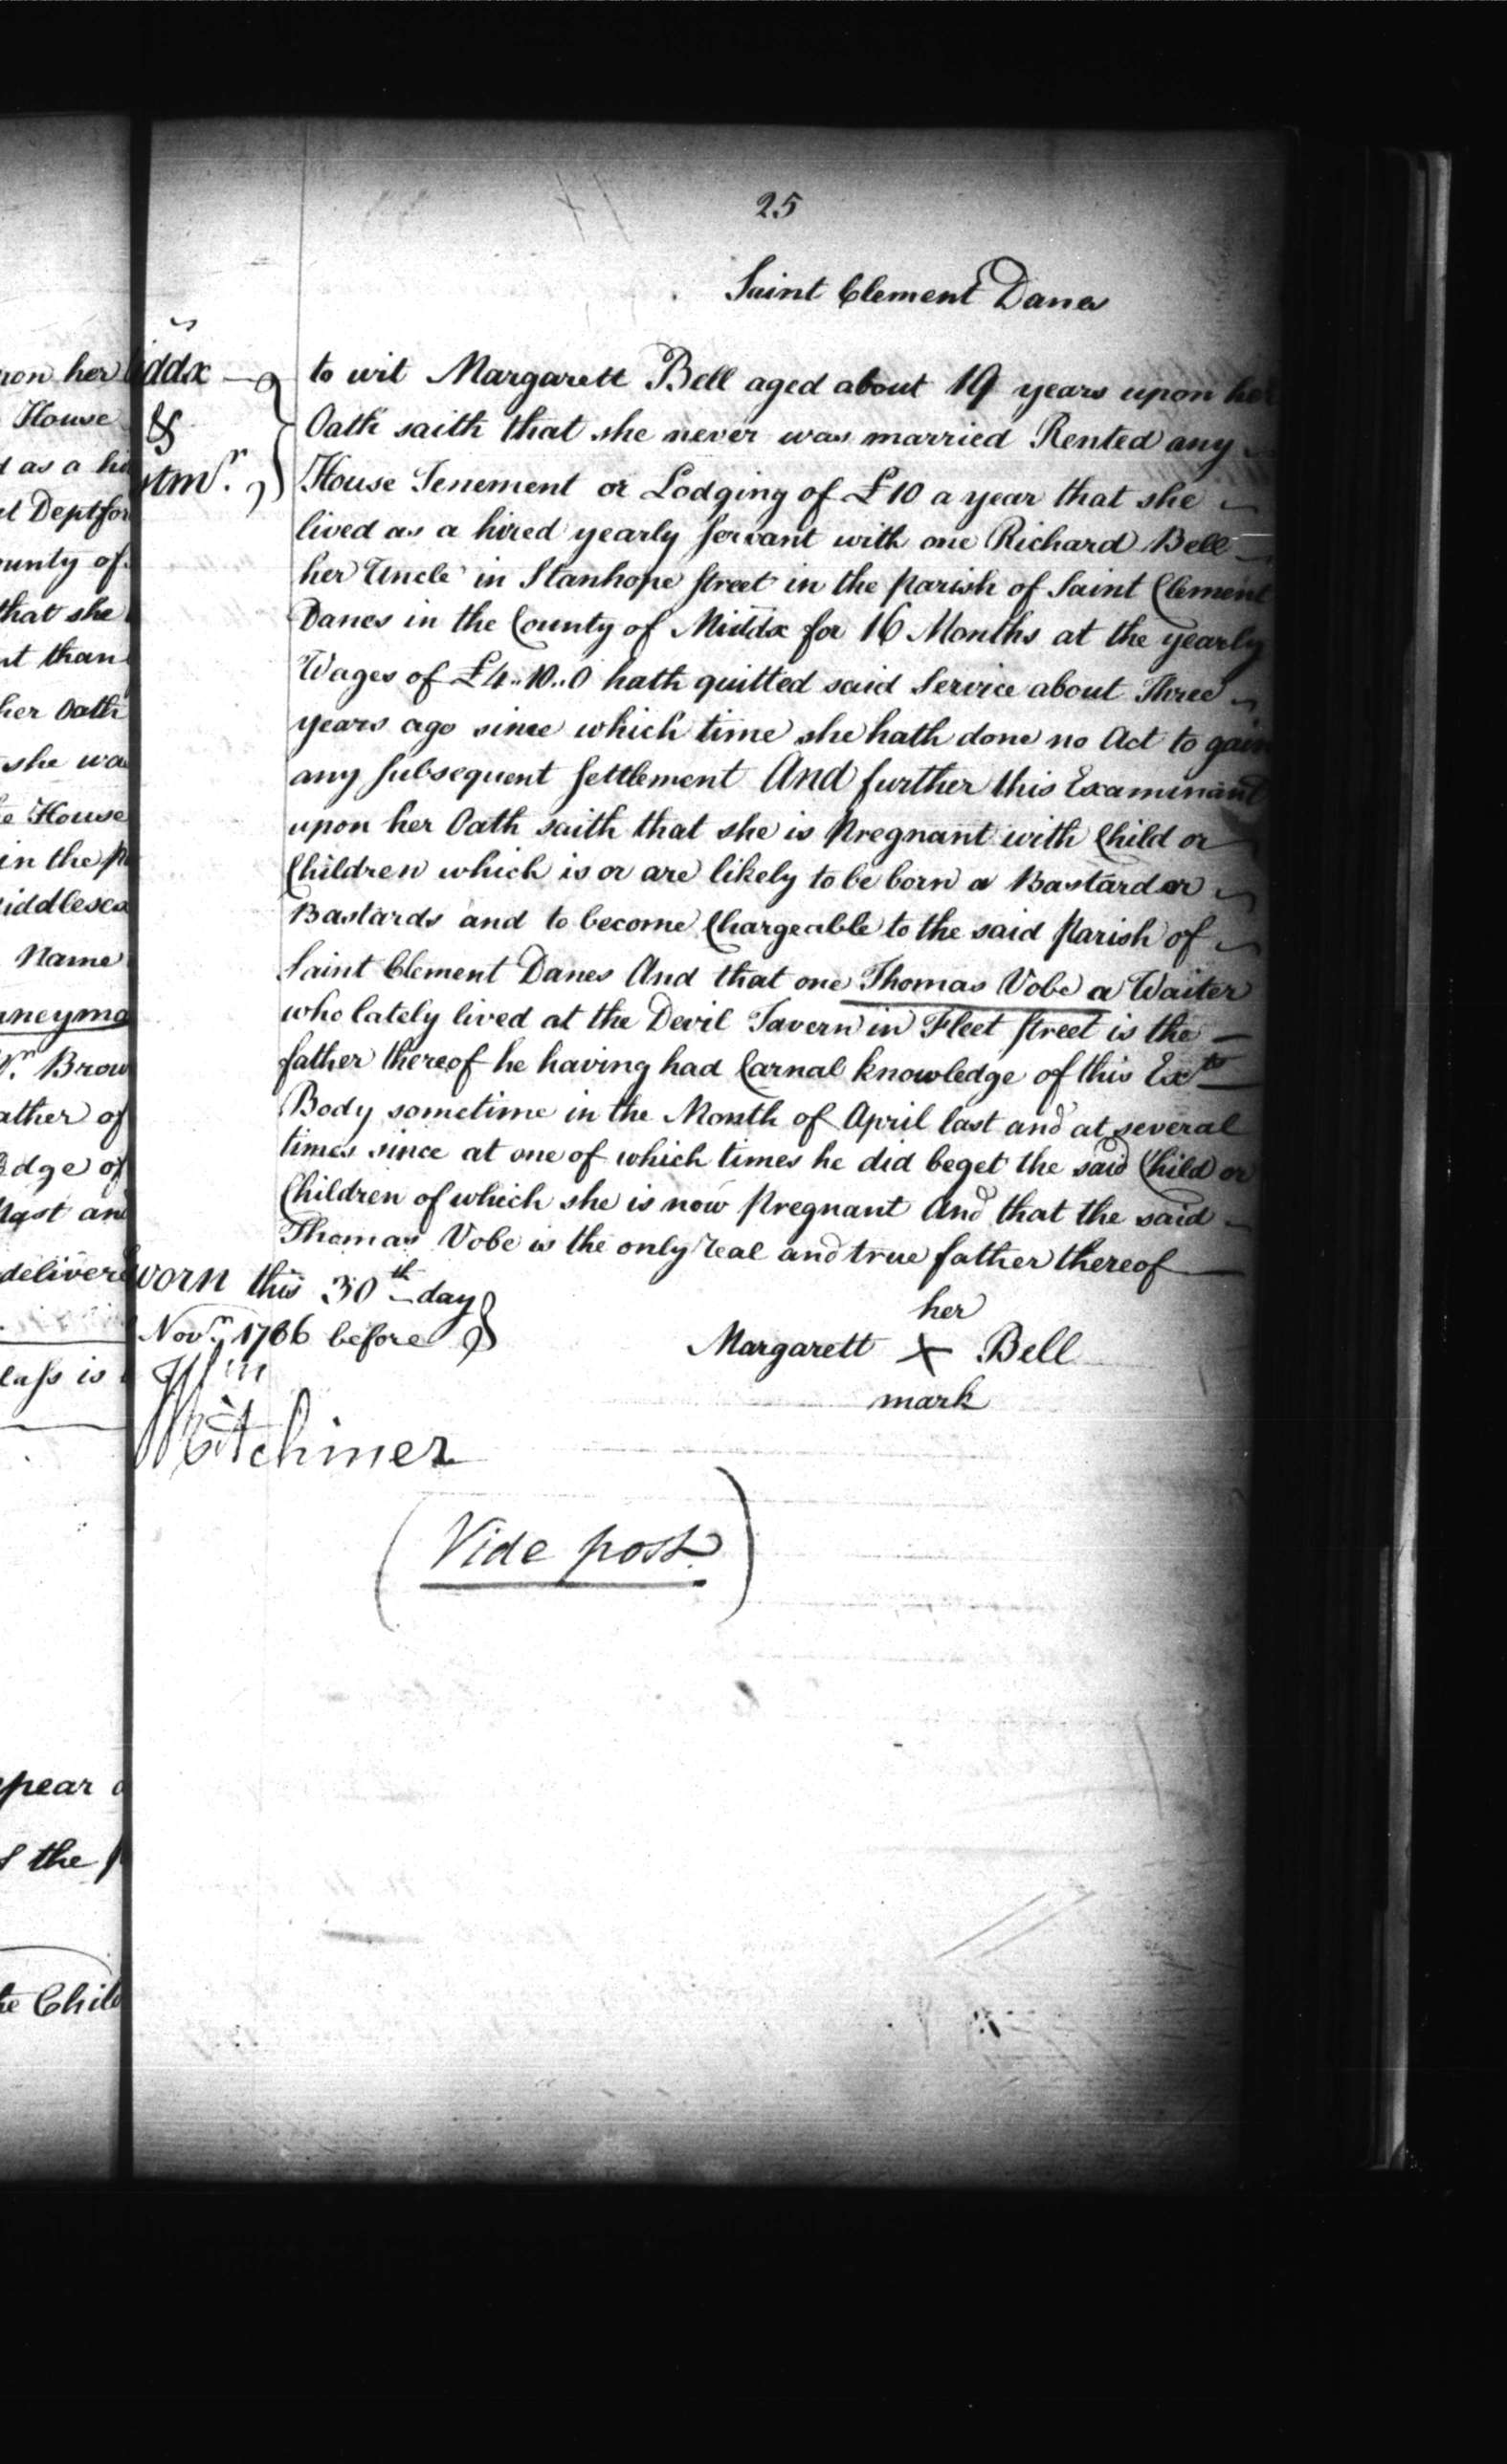 25
Saint Clement Danes
iddx
&
stmr.
to wit Margarett Bell aged about 19 years upon her
Oath saith that she never was married Rented any
House Tenement or Lodging of £10 a year that she
lived as a hired yearly Servant with one Richard Bell
her Uncle in Stanhope Street in the Parish of Saint Clement
Danes in the County of Middx for 16 Months at the yearly
Wages of £4..10..0 hath quitted said Service about Three
years ago since which time she hath done no Act to gain
any subsequent Settlement And further this Examinant
upon her Oath saith that she is Pregnant with Child or
Children which is or are likely to be born a Bastard or
Bastards and to become Chargeable to the said Parish of
Saint Clement Danes And that one Thomas Vobe a Waiter
who lately lived at the Devil Tavern in Fleet Street is the
father thereof he having had Carnal knowledge of this Exts
Body sometime in the Month of April last and at several
times since at one of which times he did beget the said Child or
Children of which she is now Pregnant And that the said
Thomas Vobe is the only real and true father thereof
worn this 30th day
Novr. 1766 before
her
Margarett X Bell
mark
Mitchiner
(Vide post)
on her
House
as a hi
t Deptfor
ounty of
that she
nt than
her Oath
she wa
e House
in the P
iddlesex
Name
neyma
Brow
ather of
edge of
last and
deliver
lass is
ppear
the
e Child